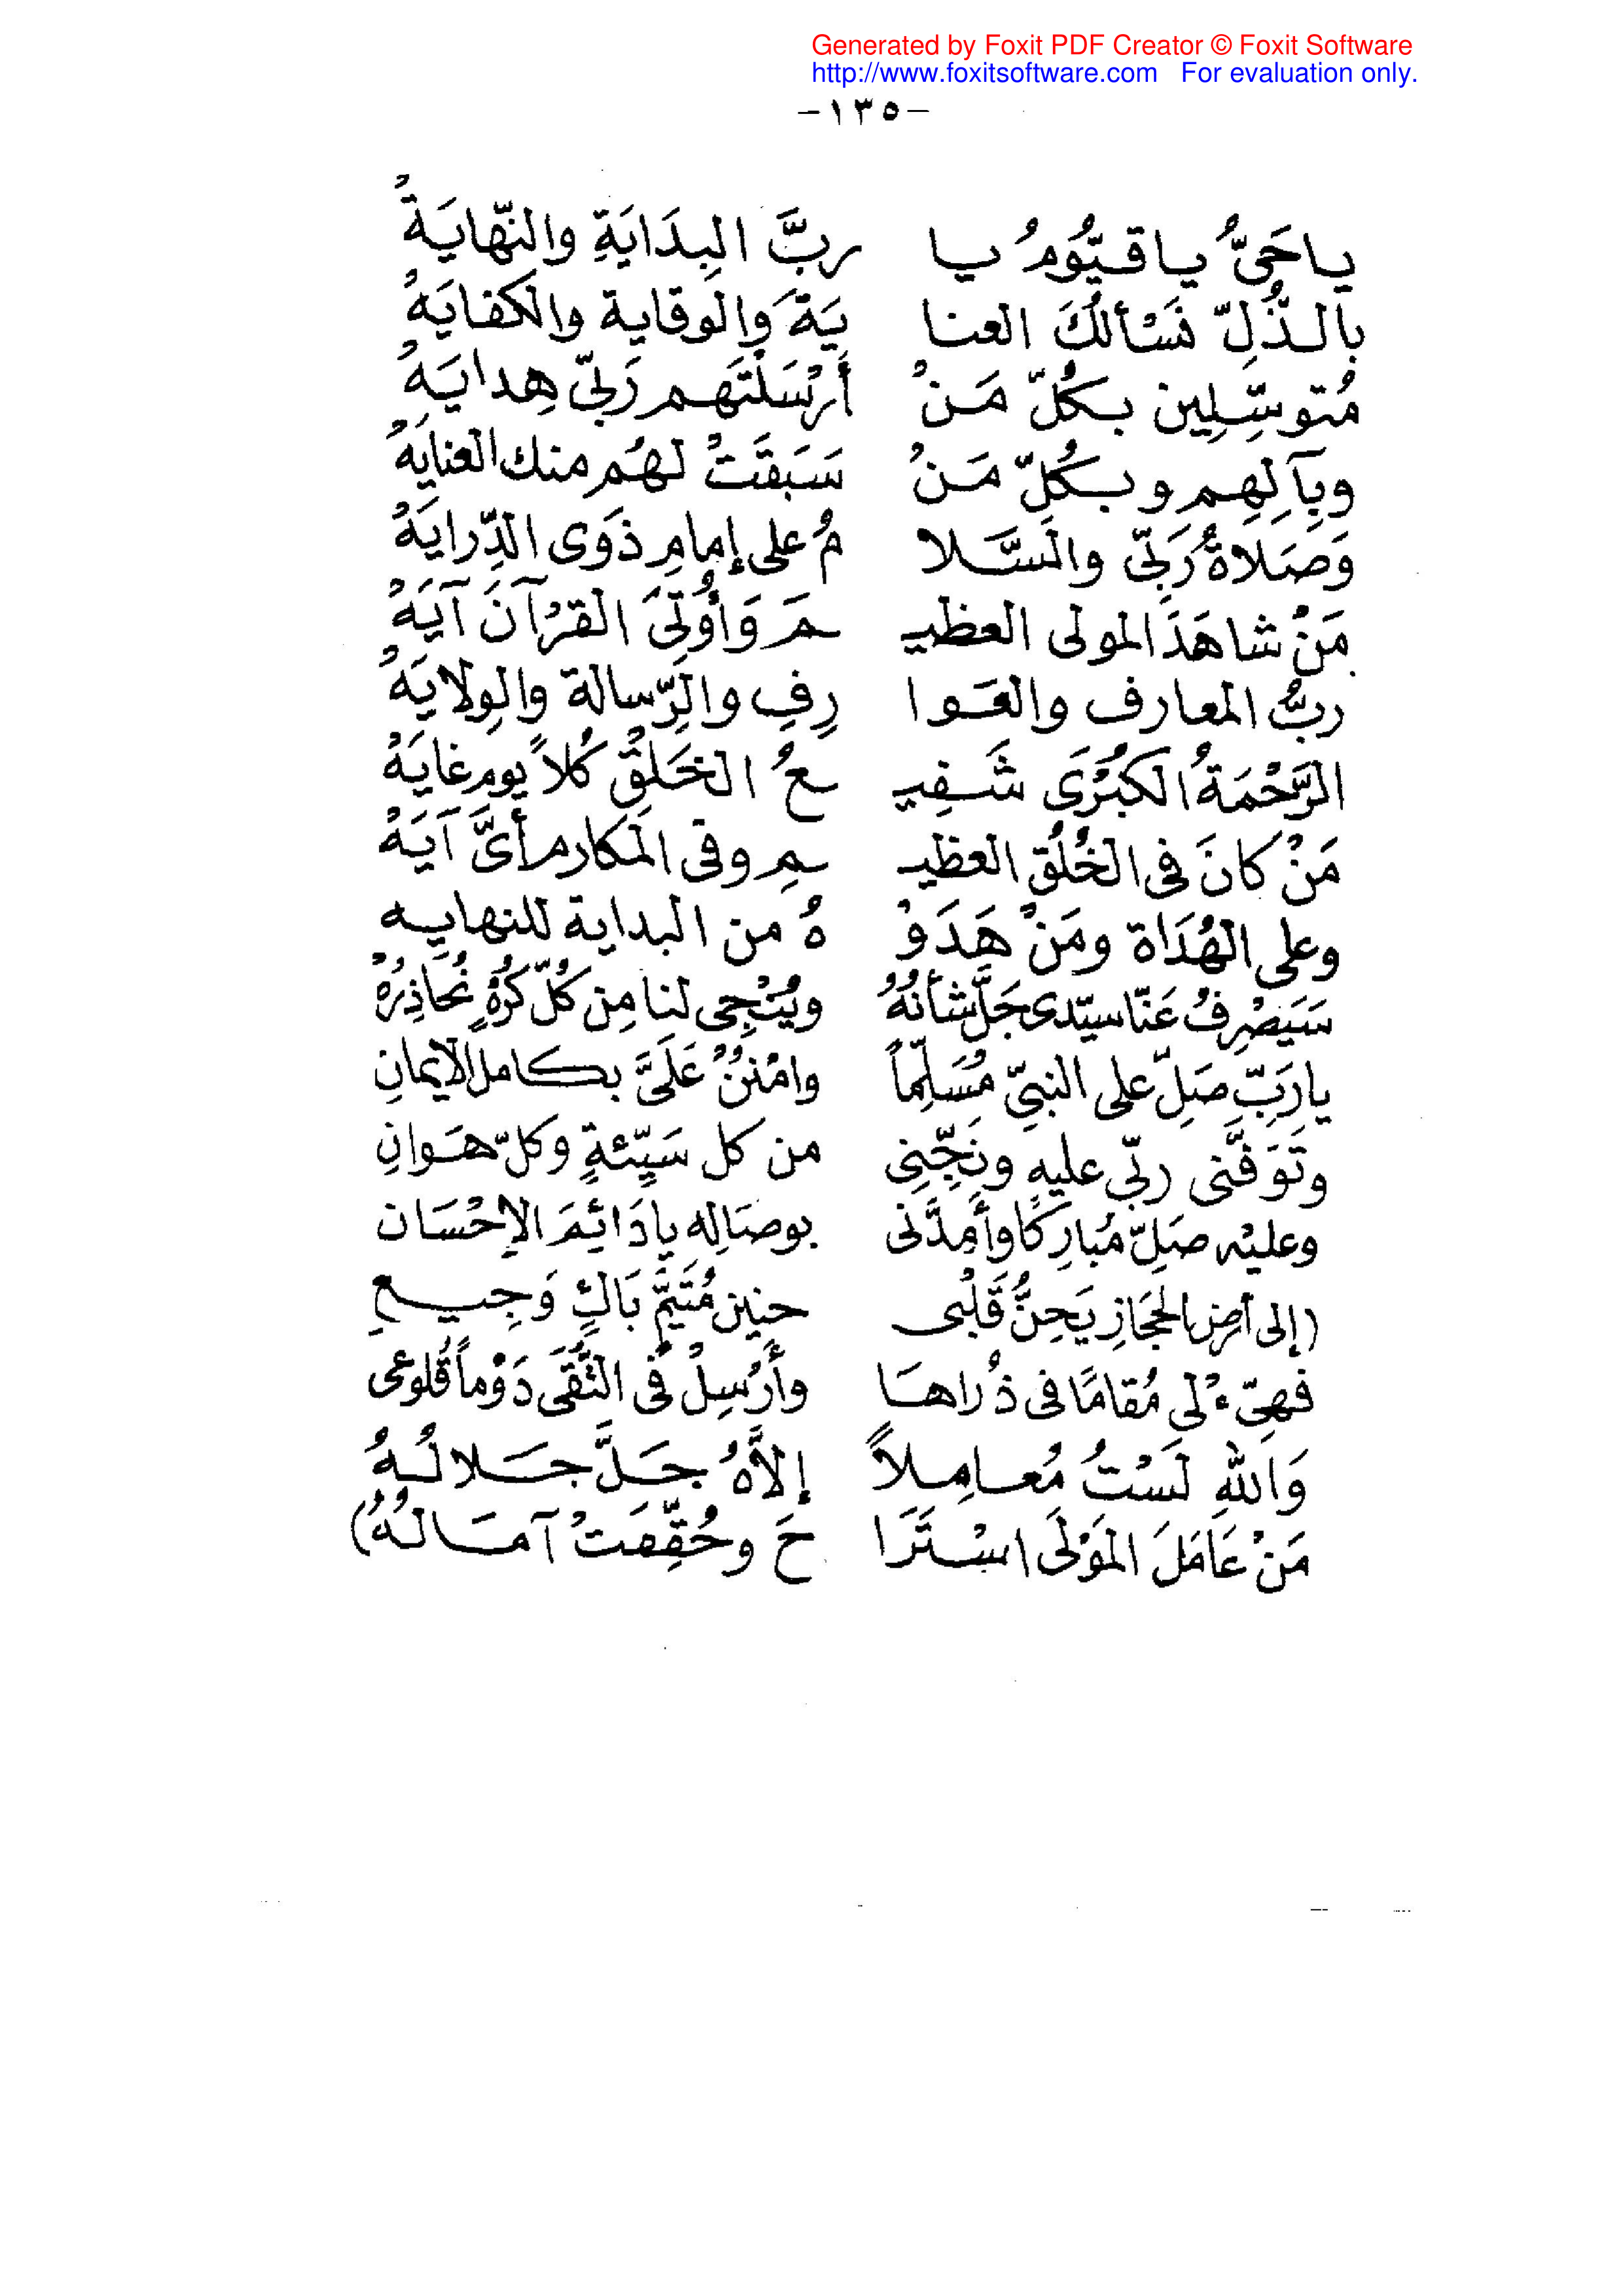 Generated by Foxit PDF Creator © Foxit Software
http://www.foxitsoftware.com For evaluation only.
-١٣٥-
ياحَىُّ ياقيُّومُ يا ربَّ البِدَايَةِ والنّهايَةْ
بالذُّلِّ نَسْألُكَ العنا يَةَ وَالوقاية والكفايَهْ
مُتوسِّلِين بكُلِّ مَنْ أَرْسَلْتَهم رَبِّى هِدايَهْ
وبِآلِهِم وبكُلِّ مَنْ سَبَقَتْ لهُم منك العنايهْ
وَصَلاةُ رَبِّى والسَّلا مُ على إمامِ ذَوَى الدِّرايَهْ
مَنْ شاهَدَ المولى العظيـ ـمَ وَأُوتِىَ القرْآنَ آيَهْ
ربُّ المعارف والعَوا رِفِ والرِّسالة والوِلايَهْ
الرَّحْمَةُ الكبْرَى شَفِيـ ـعُ الخَلقِ كُلاً يوم غايَهْ
مَنْ كانَ فى الخُلُقِ العظيـ ـمِ وفى المَكارم أىَّ آيَهْ
وعلى الهُدَاة ومَنْ هَدَوْ هُ من البداية للنهايه
سَيَصْرِفُ عَنّا سيّدى جَلَّ شأنُهُ ويُنْجِى لنا مِن كُلِّ كُرْهٍ نُحاذِرُهْ
يارَبِّ صَلِّ على النبىِّ مُسَلِّماً وامْنُنْ عَلَىَّ بكامل الايمانِ
وتَوَفَّنى ربِّى عليهِ ونَجِّنِى من كل سَيِّئةٍ وكلّ هَوانِ
وعليْه صَلِّ مُبارِكًا وأمِدَّنى بوصَالِه يادَائِمَ الإحْسَان
(إلى أرضِ الحجَازِ يَحِنُّ قَلْبى حنِين مُتَيَّمٍ بَاكٍ وَجِيـعِ
فهيِّءْ لى مُقامًا فى ذُراها وأَرْسِلْ فى التُّقَى دَوْماً قُلوعى
وَاللهِ لَسْتُ مُعامِلاً إلاَّهُ جَلَّ جَلالُهُ
مَنْ عَامَلَ المَوْلَى اسْتَرَا حَ وحُقِّقَتْ آمَالُهُ)